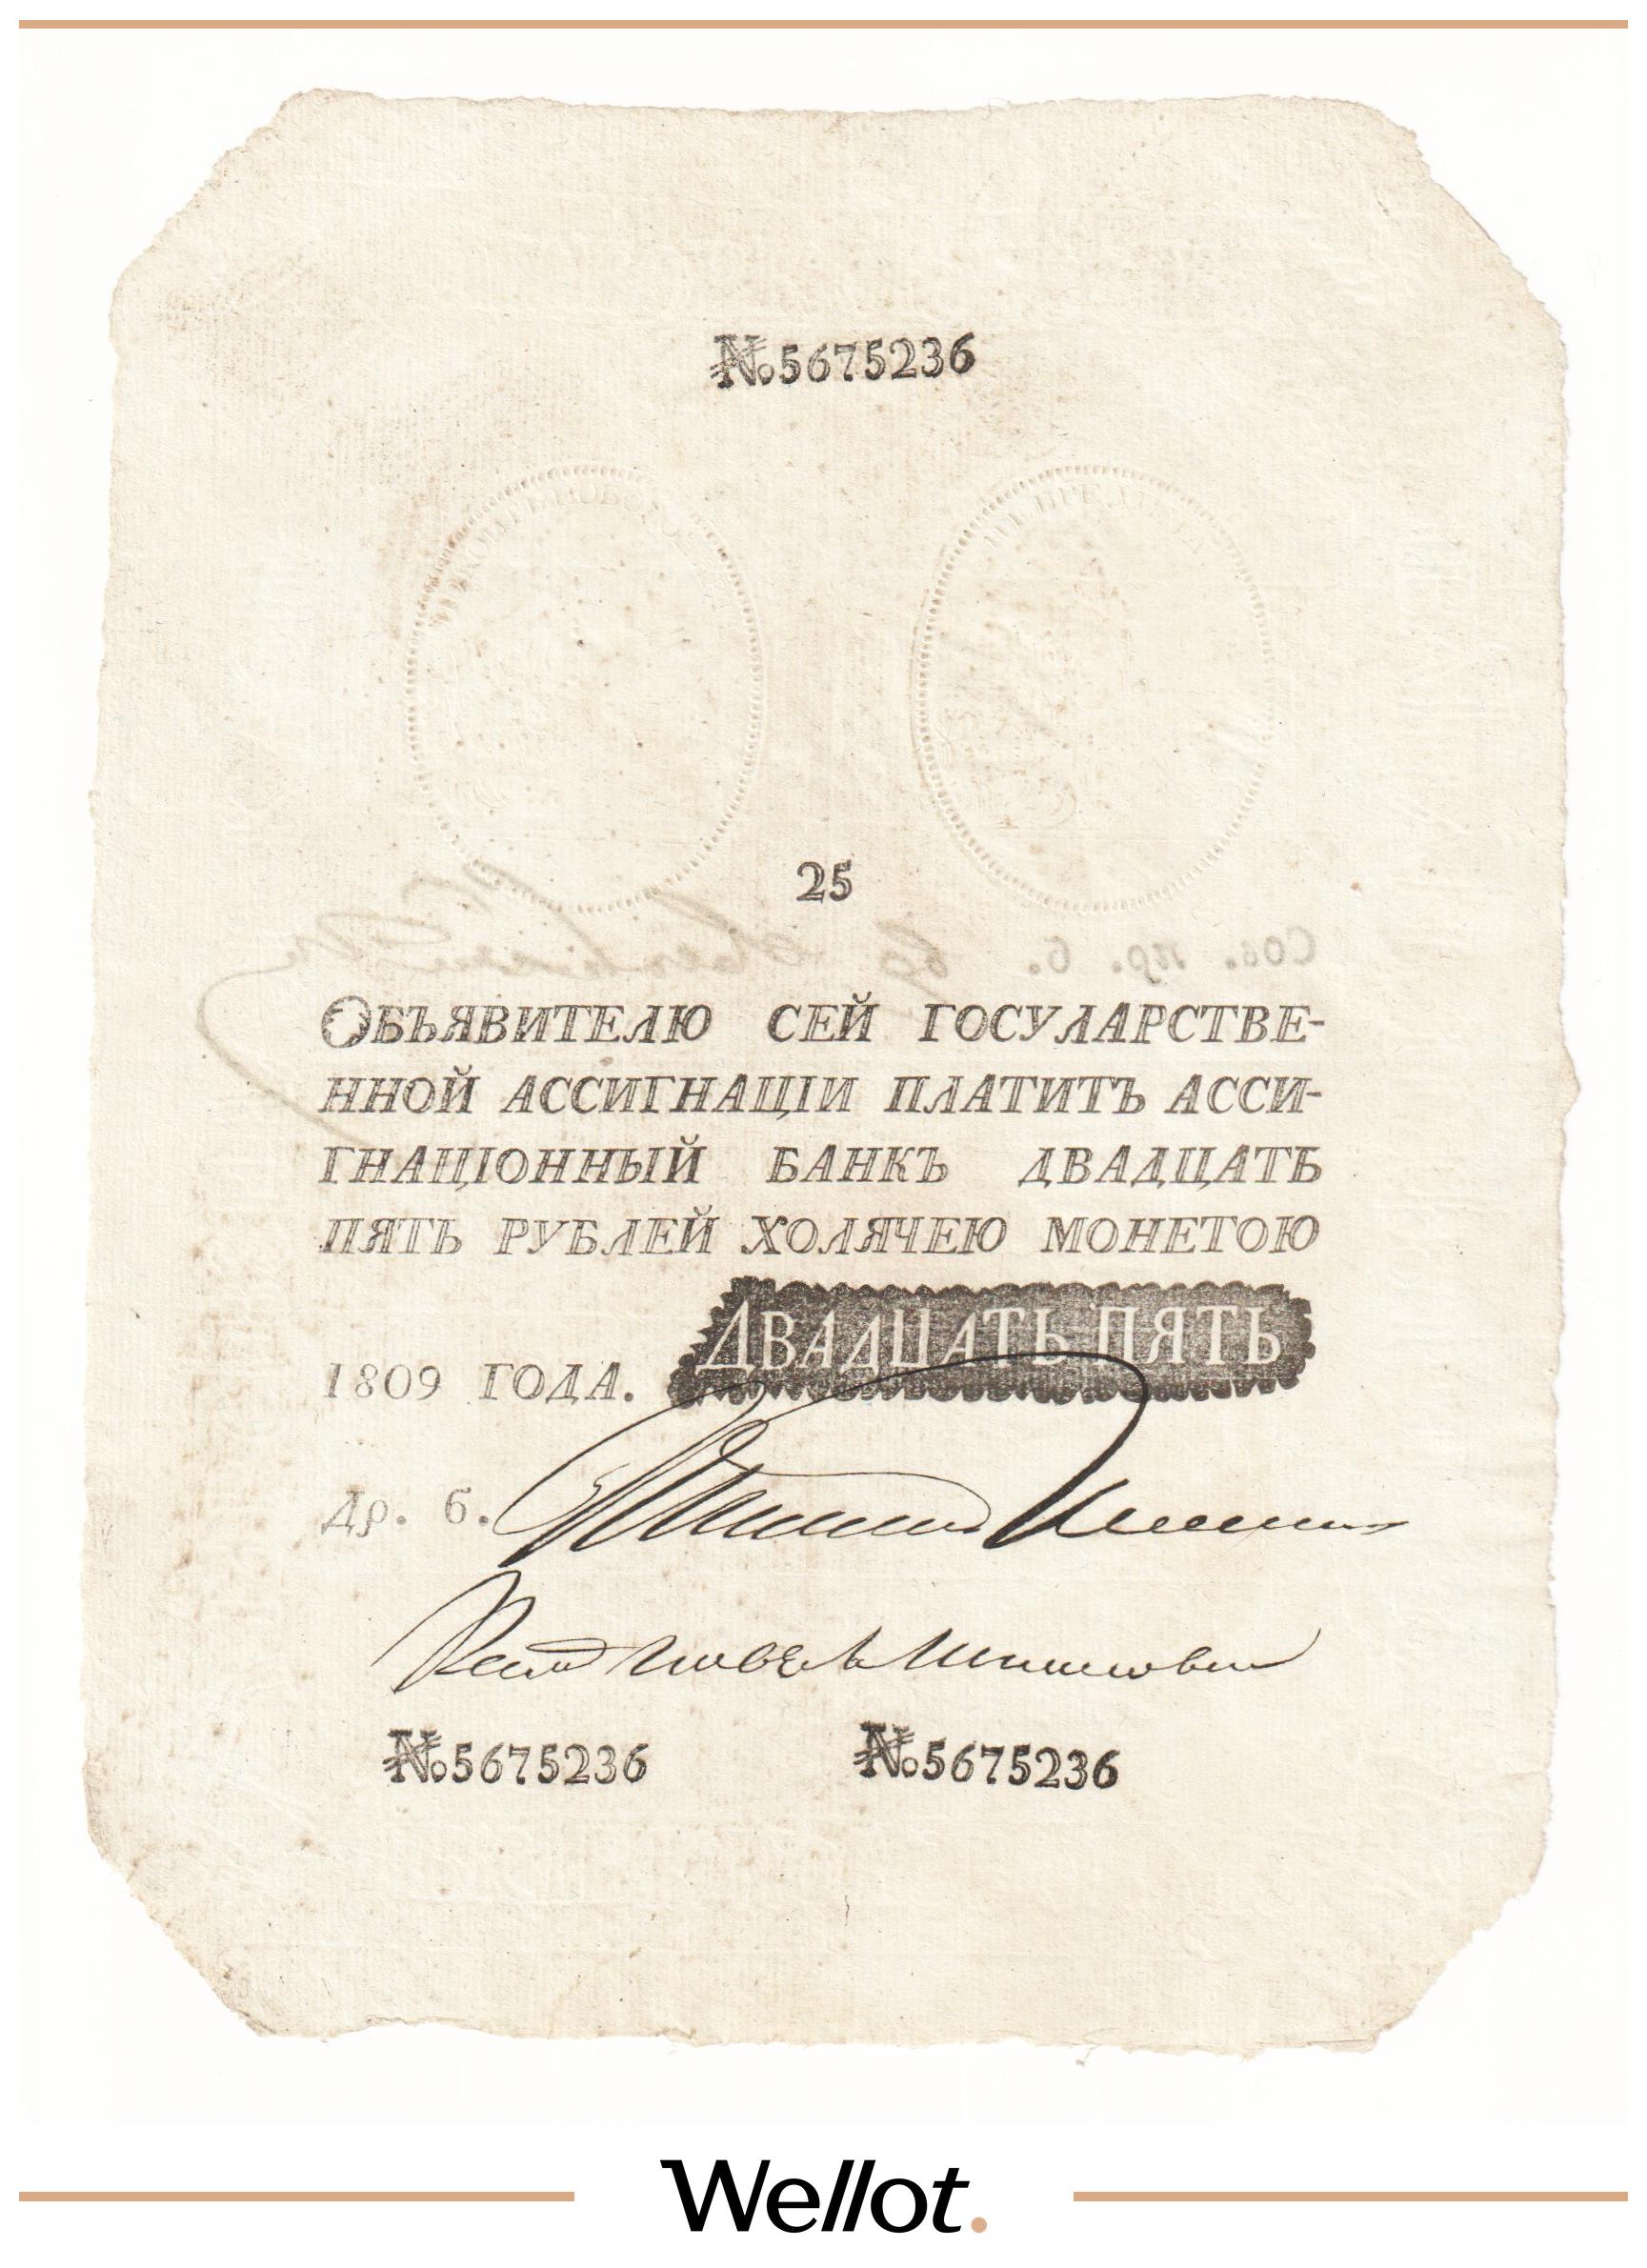 №.5675236
25
ОБЪЯВИТЕЛЮ СЕЙ ГОСУЛАРСТВЕ-
ННОЙ АССИГНАЦІИ ПЛАТИТЪ АССИ-
ГНАЦІОННЫЙ БАНКЪ ДВАДЦАТЬ
ПЯТЬ РУБЛЕЙ ХОЛЯЧЕЮ МОНЕТОЮ
ДВАДЦАТЬ ПЯТЬ
1809 ГОДА.
Др. б.
№.5675236 №.5675236
Wellot.